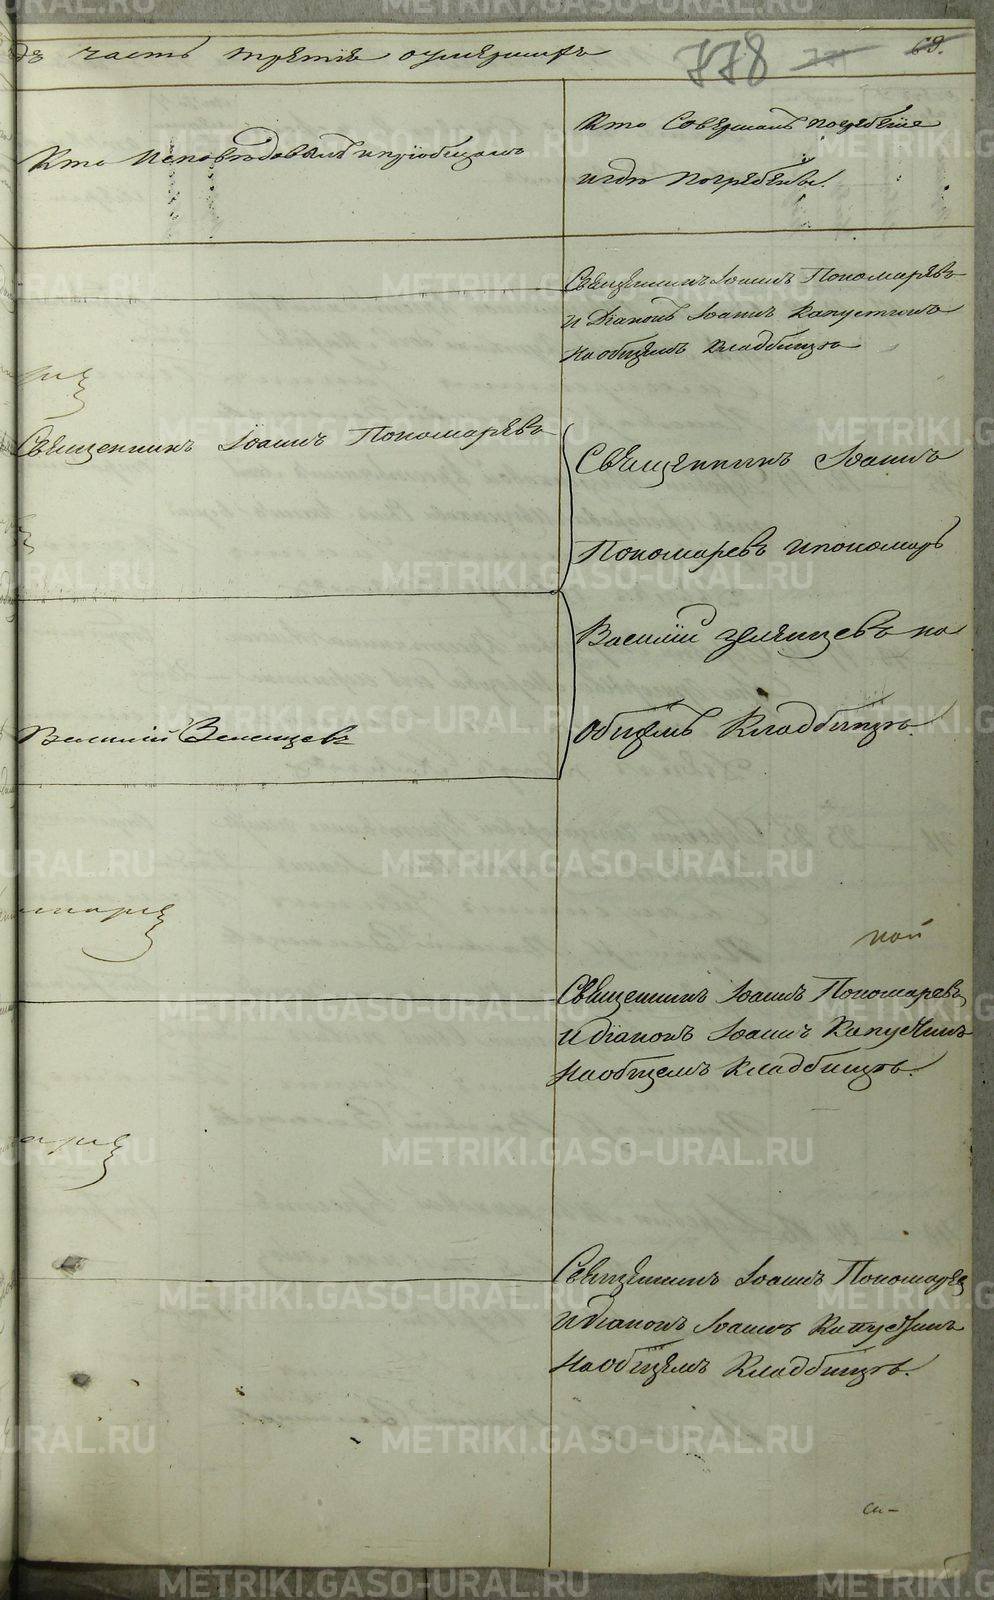 часть третiя о умершихъ
778
69.
Кто исповѣдовалъ и прiобщалъ
Кто Совершалъ погребенiе
и гдѣ погребены.
Священникъ Iоаннъ Пономаревъ
и Дiаконъ Iоаннъ Капустинъ
на общемъ кладбищѣ
Священникъ Iоаннъ Пономаревъ
Священникъ Iоаннъ
Пономаревъ и пономарь
Василiй Зеленцевъ на
общемъ Кладбищѣ.
Василiй Зеленцевъ
ной
Священникъ Iоаннъ Пономаревъ
и дiаконъ Iоаннъ Капустинъ
на общемъ Кладбищѣ.
Священникъ Iоаннъ Пономарев
и дiаконъ Iоаннъ Капустинъ
на общемъ Кладбищѣ.
METRIKI.GASO-URAL.RU